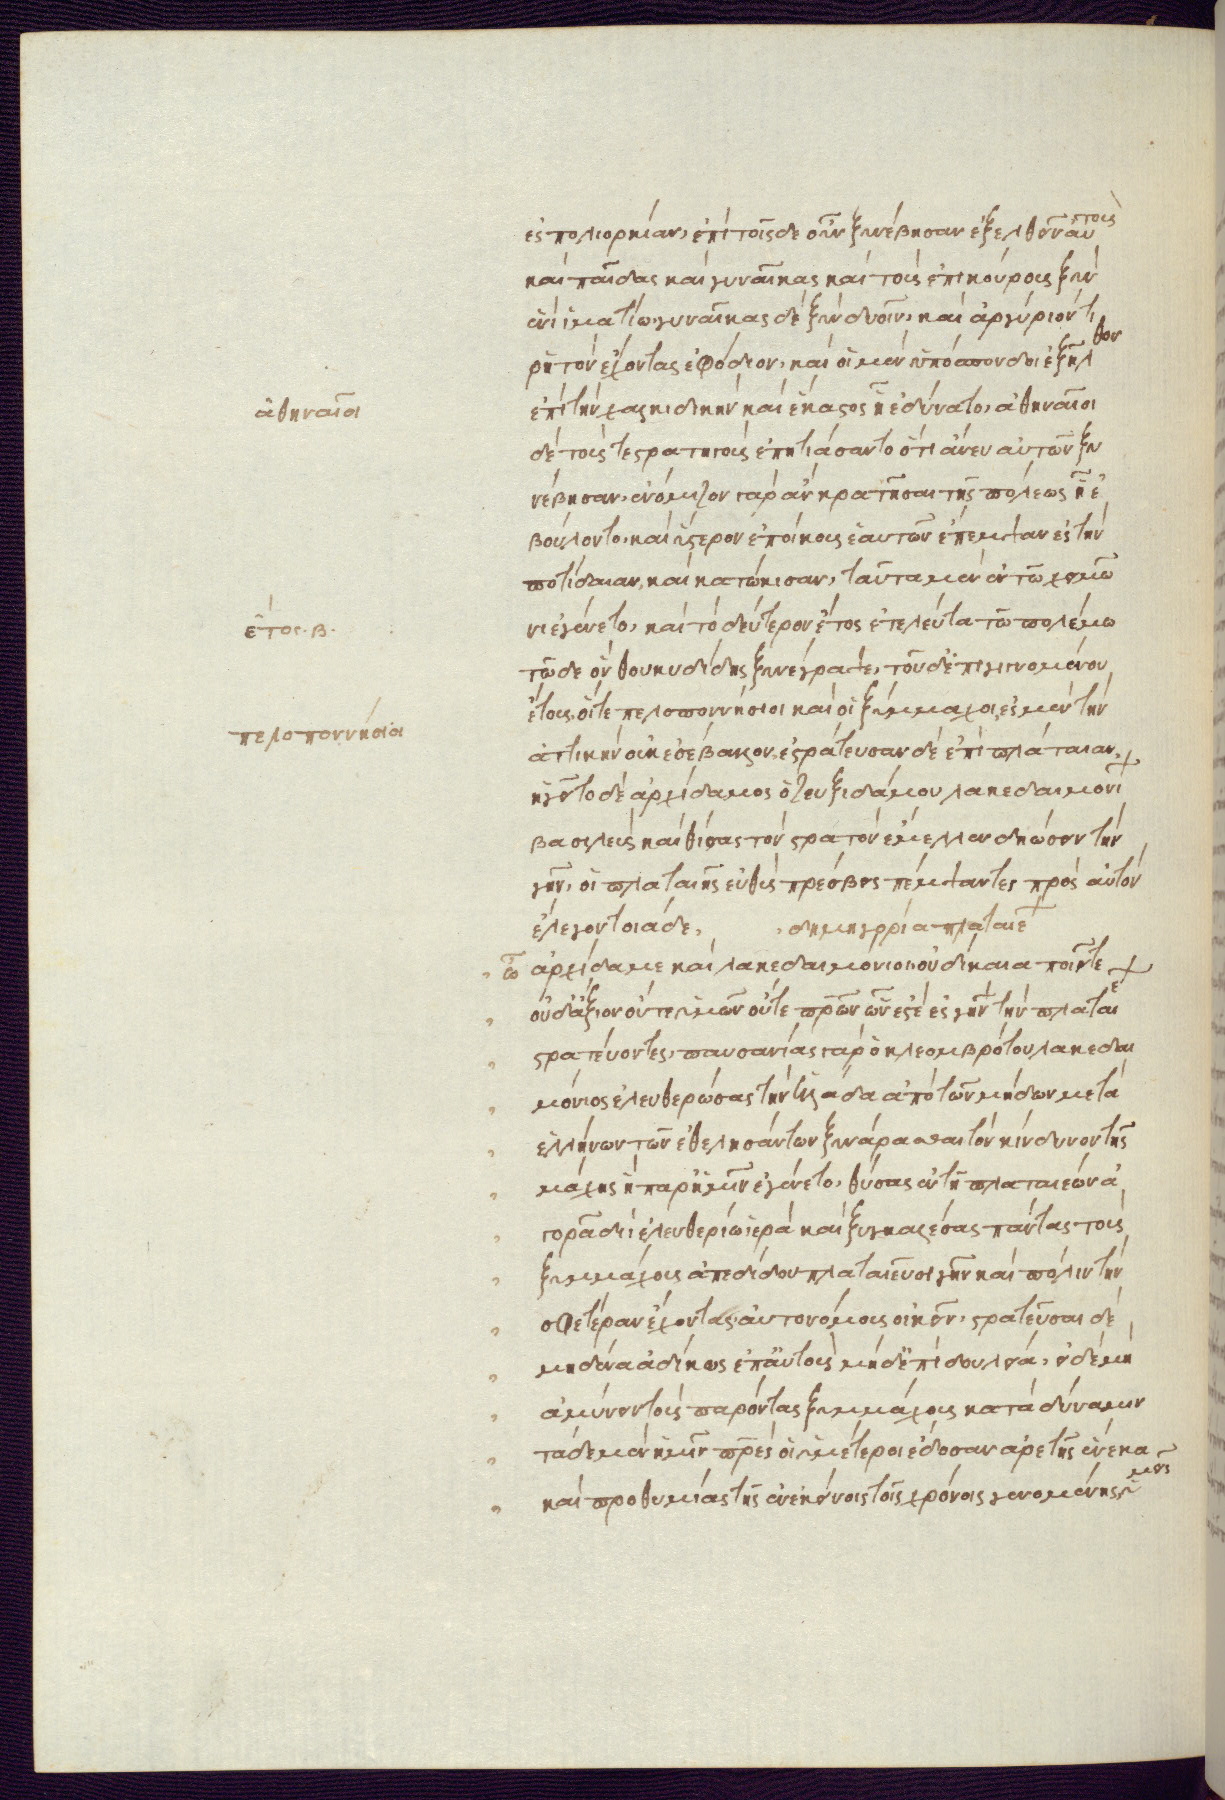 ἐς πολιορκίαν, ἐπὶ τοῖσδε οὖν ξυνέβησαν ἐξελθεῖν αὐτοὺς
καὶ παῖδας καὶ γυναῖκας καὶ τοὺς ἐπικούρους ξὺν
ἑνὶ ἱματίω, γυναῖκας δὲ ξὺν δυοῖν, καὶ ἀργύριόν τι
ῥητὸν ἔχοντας ἐφόδιον, καὶ οἱ μὲν ὑπόσπονδοι ἐξῆλθον
ἀθηναῖοι
ἐπὶ τὴν χαλκιδικὴν καὶ ἕκαστος ἧ ἐδύνατο, ἀθηναῖοι
δὲ τούς τε στρατηγοὺς ἐπητιάσαντο ὅτι ἄνευ αὐτῶν ξυ
νέβησαν, ἐνόμιζον γὰρ ἂν κρατῆσαι τῆς πόλεως ἧ ἐ
βούλοντο, καὶ ὕστερον ἐποίκους ἑαυτῶν ἔπεμψαν ἐς τὴν
ποτίδαιαν, καὶ κατώκισαν, ταῦτα μὲν ἐν τῶ χειμῶ
ἔτος .β.
νι ἐγένετο, καὶ τὸ δεύτερον ἔτος ἐτελεύτα τῶ πολέμω
τῶδε ὃν θουκυδίδης ξυνέγραψε, τοῦ δ' ἐπιγιγνομένου
ἔτους, οἵ τε πελοποννήσιοι καὶ οἱ ξύμμαχοι, ἐς μὲν τὴν
πελοποννήσιοι
ἀττικὴν οὐκ ἐσέβαλον, ἐστράτευσαν δὲ ἐπὶ πλάταιαν,
ἡγεῖτο δὲ ἀρχίδαμος ὁ ζευξιδάμου λακεδαιμονί
βασιλεὺς καὶ καθίσας τὸν στρατὸν ἔμελλεν δηώσειν τὴν
γῆν, οἱ πλαταιῆς εὐθὺς πρέσβεις πέμψαντες πρὸς αὐτὸν
ἔλεγον τοιάδε, , δημηγορία πλαταιέ
ὦ ἀρχίδαμε καὶ λακεδαιμόνιοι, οὐ δίκαια ποιεῖτε
οὐδ' ἄξια οὔτε ὑμῶν οὔτε πρῶν ὧν ἐστὲ ἐς γῆν τὴν πλαταιέ
στρατεύοντες, παυσανίας γὰρ ὁ κλεομβρότου λακεδαι
μόνιος ἐλευθερώσας τὴν ἑλλάδα ἀπὸ τῶν μήδων μετὰ
ἑλλήνων τῶν ἐθελησάντων ξυνάρασθαι τὸν κίνδυνον τῆς
μάχης ἣ παρ' ἡμῖν ἐγένετο, θύσας ἐν τῆ πλαταιέων ἀ
γορᾶ διὶ ἐλευθερίω ἱερὰ καὶ ξυγκαλέσας πάντας τοὺς
ξυμμάχους ἀπεδίδου πλαταιεῦσι γῆν καὶ πόλιν τὴν
σφετέραν ἔχοντας αὐτονόμους οἰκεῖν, στρατεῦσαι δὲ
μηδένα ἀδίκως ἐπ' αὐτοὺς μήδ' ἐπὶ δουλεία, εἰ δὲ μὴ
ἀμύνειν τοὺς παρόντας ξυμμάχους κατὰ δύναμιν
τάδε μὲν ἡμῖν πρες οἱ ὑμέτεροι ἔδοσαν ἀρετῆς ἕνεκα
καὶ προθυμίας τῆς ἐν ἐκείνοις τοῖς χρόνοις γενομένης, ὑμεῖς